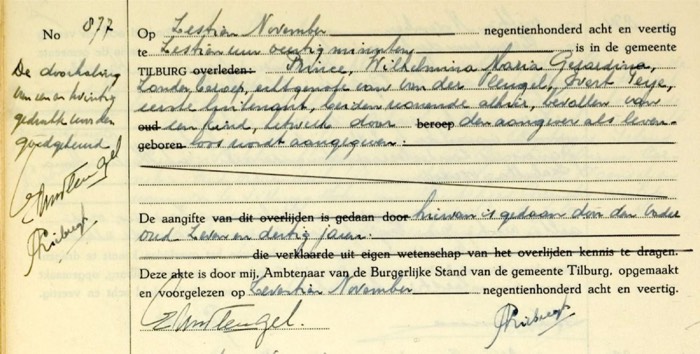 No 877
De doorhaling
van een en twintig
gedrukte woorden
goedgekeurd
Op Zestien November negentienhonderd acht en veertig
te Zestien uur veertig minuten is in de gemeente
TILBURG overleden: Prince, Wilhelmina Maria Gerardina,
zonder beroep, echtgenote van van der Vleugel, Evert
eerste luitenant, beiden wonende alhier, bevallen van
oud een kind, hetwelk door beroep den aangever als leven-
geboren loos wordt aangegeven:
De aangifte van dit overlijden is gedaan door hiervan is gedaan door den vader
oud zeven en dertig jaren.
die verklaarde uit eigen wetenschap van het overlijden kennis te dragen.
Deze akte is door mij, Ambtenaar van de Burgerlijke Stand van de gemeente Tilburg, opgemaakt
en voorgelezen op Zeventien November negentienhonderd acht en veertig.